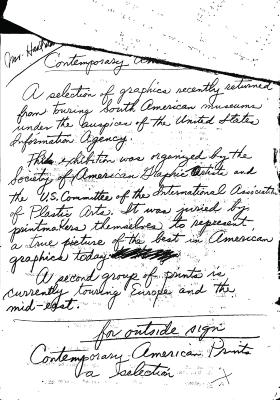 Mr. 
Contemporary Am
A selection of graphics recently returned
from touring South American museums
under the auspices of the United States
Information Agency.
This exhibition was organized by the
Society of American Graphic Artists and
the U.S. Committee of the International Association
of Plastic Arts. It was juried by
printmakers themselves to represent
a true picture of the best in American
graphics today
A second group of prints is
currently touring Europe and the
mid-east.
for outside sign
Contemporary American Prints
a selection